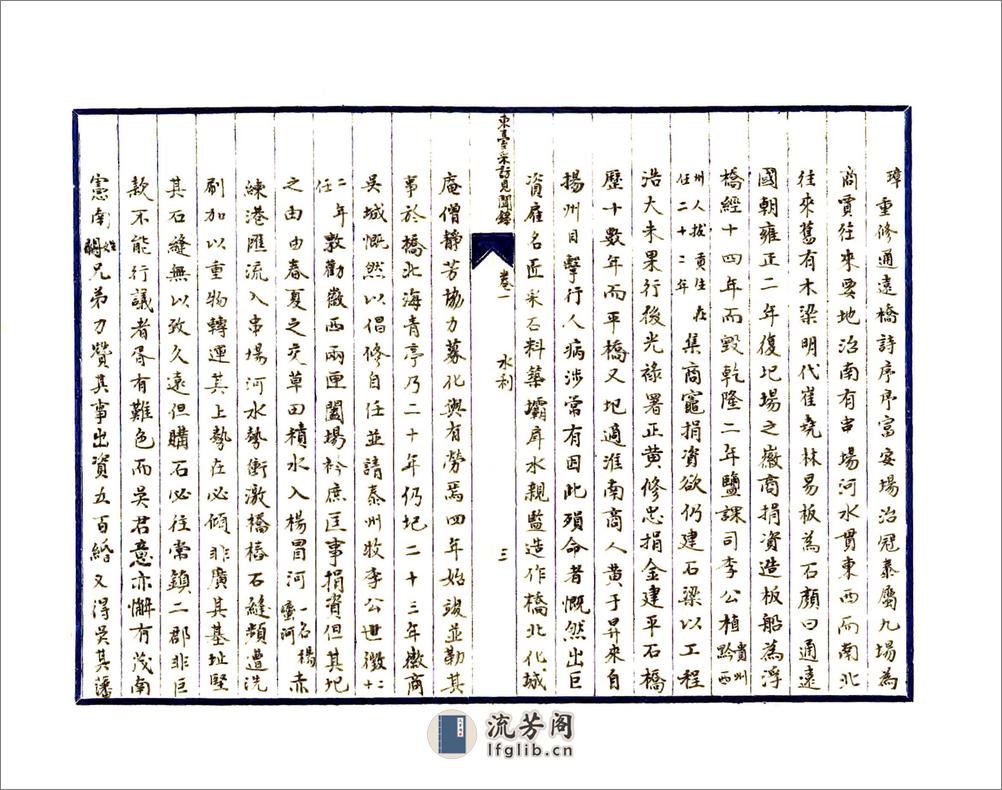 璋重修通遠橋詩序序富安場治冠泰屬九場為
商賈往來要地治南有串場河水貫東西而南北
往來舊有木梁明代崔堯林易板為石顏曰通遠
國朝雍正二年復圮場之徽商捐資造板船為浮
橋經十四年而毀乾隆二年鹽課司李公植貴州黔西
州人拔貢生在任二十二年集商竈捐資欲仍建石梁以工程
浩大未果行後光祿署正黃修忠捐金建平石橋
歷十數年而平橋又圮適淮南商人黃于昇來自
揚州目擊行人病涉常有因此殞命者慨然出巨
資雇名匠采石料築壩戽水親監造作橋北化城
東臺采訪見聞錄 卷一 水利 三
庵僧靜芳協力募化與有勞焉四年始竣並勒其
事於橋北海青亭乃二十年仍圮二十三年徽商
吳城慨然以倡修自任並請泰州牧李公世徵十二
二年任敦勸徽西兩匣闔場衿庶匡事捐資但其圮
之由由春夏之交草田積水入楊冒河一名楊蠻河赤
練港匯流入串場河水勢衝激橋樁石縫頻遭洗
刷加以重物轉運其上勢在必傾非廣其基址堅
其石縫無以致久遠但購石必往常鎮二郡非巨
款不能行議者胥有難色而吳君意亦懈有茂南
憲南兄弟力贊其事出資五百緡又得吳其藩